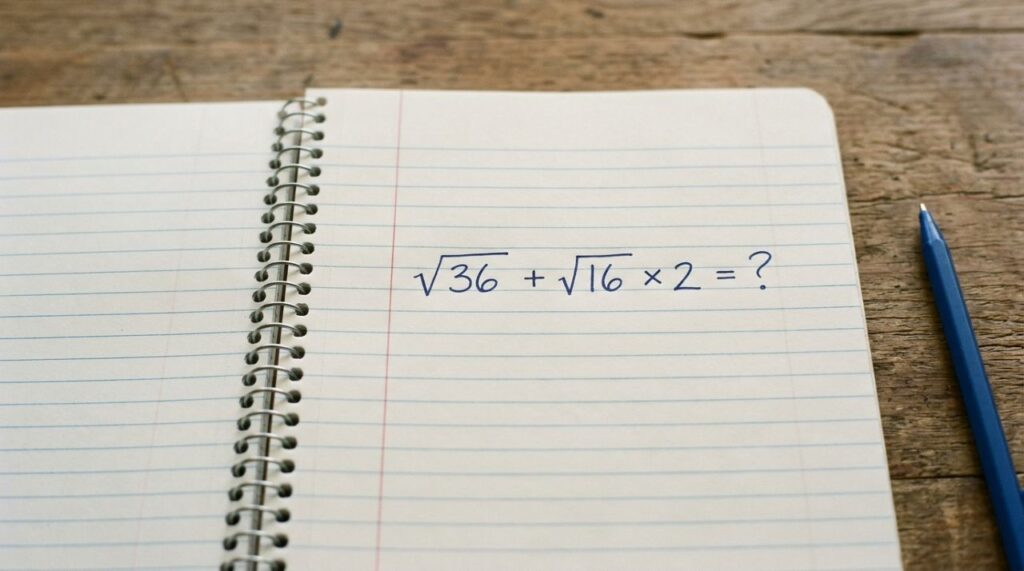 √36 + √16 × 2 = ?